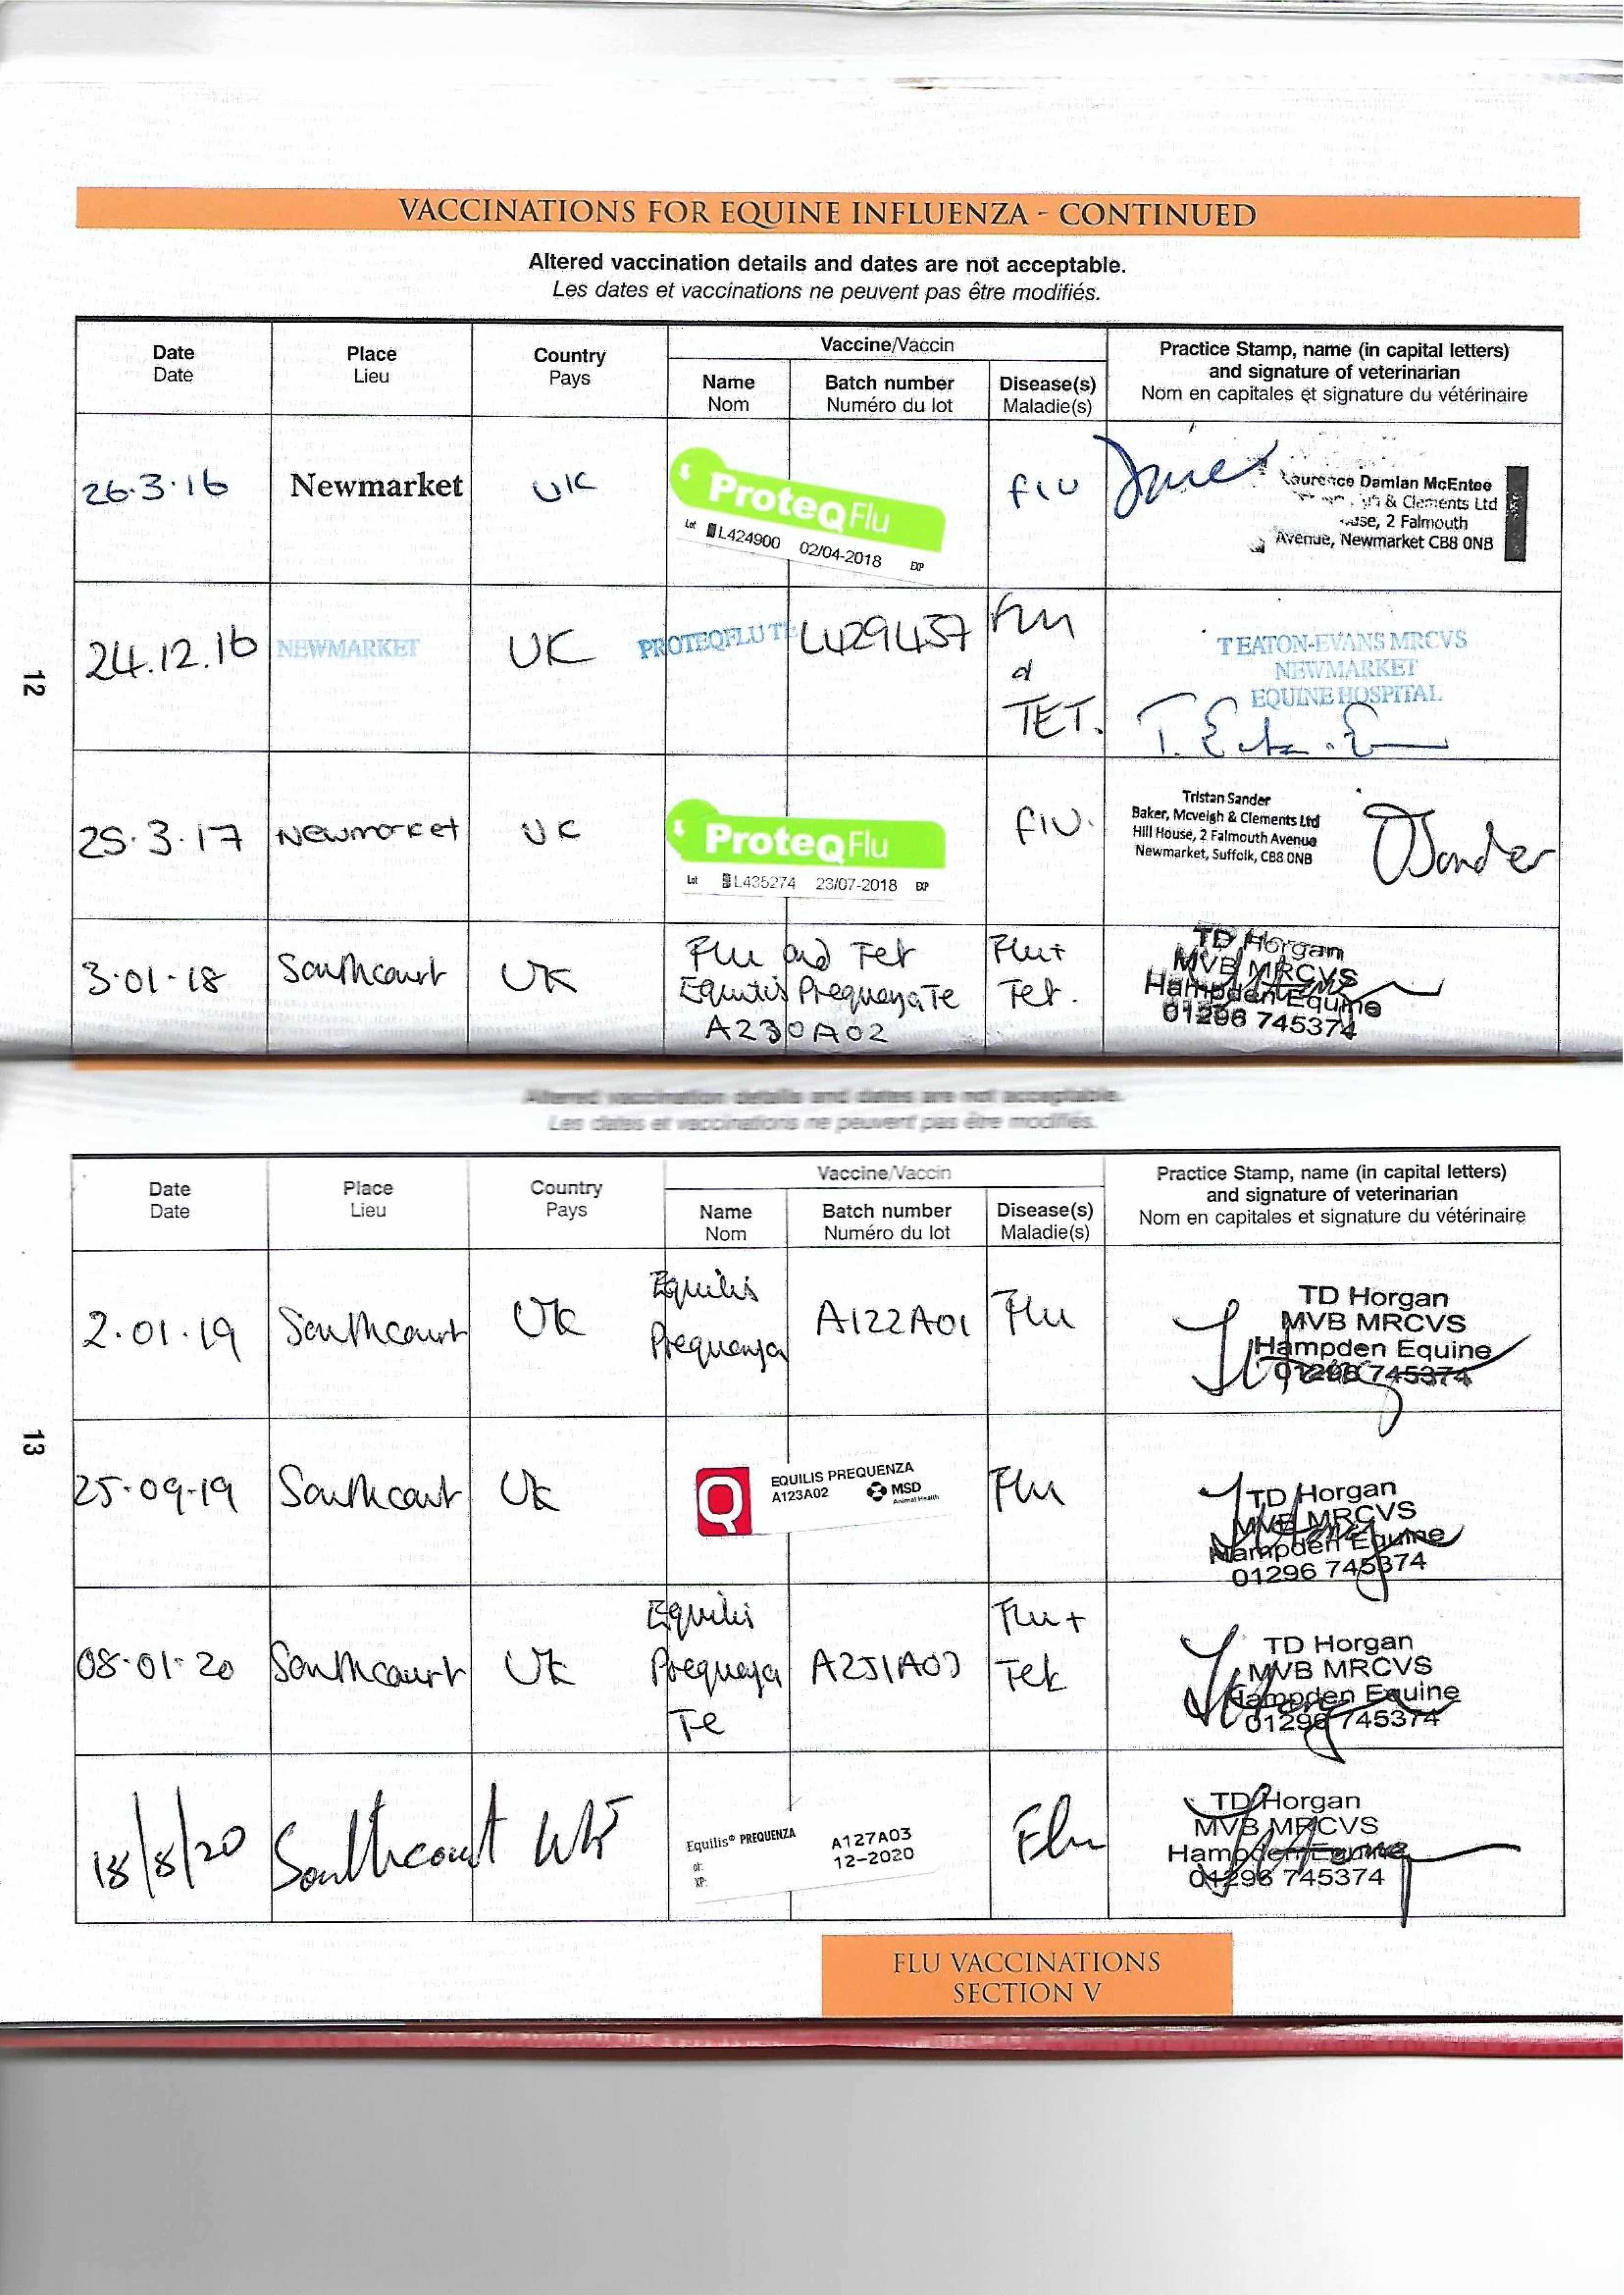 VACCINATIONS FOR EQUINE INFLUENZA - CONTINUED
Altered vaccination details and dates are not acceptable.
Les dates et vaccinations ne peuvent pas être modifiés.
Date Place Country Vaccine/Vaccin Practice Stamp, name (in capital letters)
Date Lieu Pays Name Batch number Disease(s) and signature of veterinarian
Nom Numéro du lot Maladie(s) Nom en capitales et signature du vétérinaire
26.3.16 Newmarket UK ProteqFlu flu
Lot L424900 02/04-2018 EXP
Laurence Damian McEntee
& Clements Ltd
2 Falmouth
Avenue, Newmarket CB8 0NB
24.12.16 NEWMARKET UK PROTEQFLU TE L429457 Flu
&
TET.
T EATON-EVANS MRCVS
NEWMARKET
EQUINE HOSPITAL
25.3.17 Newmarket UK ProteqFlu flu.
Lot L435274 23/07-2018 EXP
Tristan Sander
Baker, Mcveigh & Clements Ltd
Hill House, 2 Falmouth Avenue
Newmarket, Suffolk, CB8 0NB
3.01.18 Southcourt UK Flu and Tet Flu+
Equilis Prequenza Te Tet.
A230A02
TD Horgan
MVB MRCVS
Hampden Equine
01296 745374
12
Altered vaccination details and dates are not acceptable.
Les dates et vaccinations ne peuvent pas être modifiés.
Date Place Country Vaccine/Vaccin Practice Stamp, name (in capital letters)
Date Lieu Pays Name Batch number Disease(s) and signature of veterinarian
Nom Numéro du lot Maladie(s) Nom en capitales et signature du vétérinaire
2.01.19 Southcourt UK Equilis Prequenza A122A01 Flu
TD Horgan
MVB MRCVS
Hampden Equine
01296 745374
25.09.19 Southcourt UK Q EQUILIS PREQUENZA Flu
A123A02 MSD
Animal Health
TD Horgan
MVB MRCVS
Hampden Equine
01296 745374
08.01.20 Southcourt UK Equilis Prequenza Te Flu+
Tet
TD Horgan
MVB MRCVS
Hampden Equine
01296 745374
18/8/20 Southcourt Equilis® PREQUENZA A127A03 Flu
12-2020
TD Horgan
MVB MRCVS
Hampden Equine
01296 745374
13
FLU VACCINATIONS
SECTION V